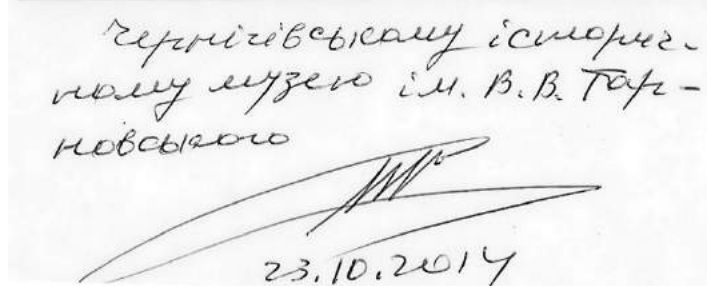 Чернігівському історич-
ному музею ім. В.В. Тар-
новського
23.10.2014